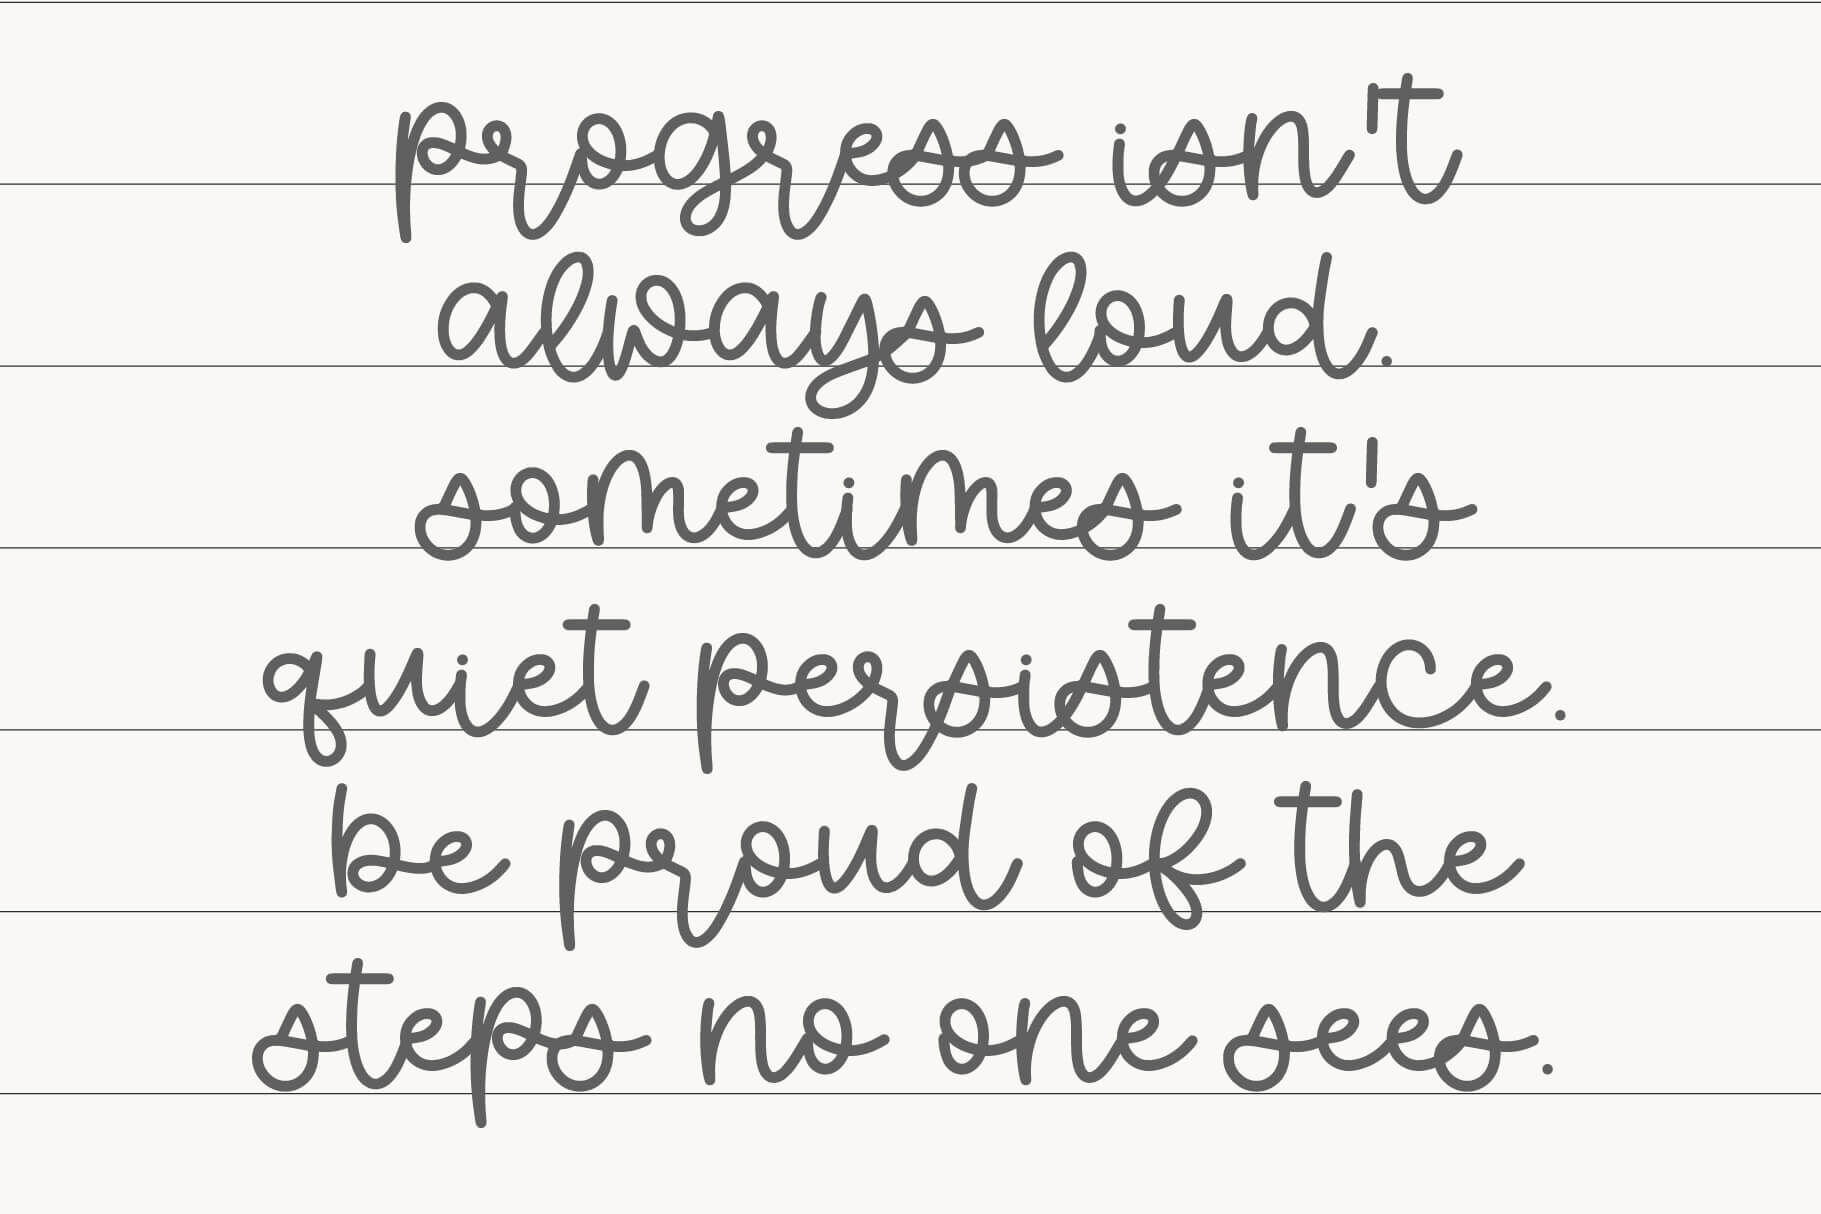 progress isn't
always loud.
sometimes it's
quiet persistence.
be proud of the
steps no one sees.